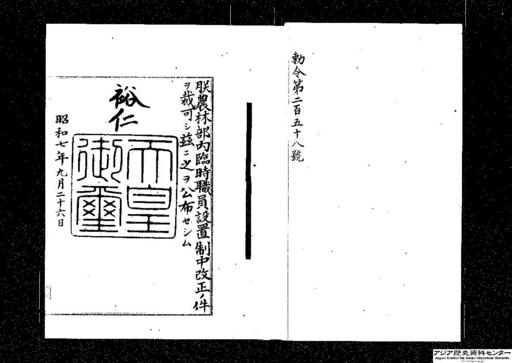 勅令第二百五十八號
朕農林部内臨時職員設置制中改正ノ件
ヲ裁可シ茲ニ之ヲ公布セシム
裕仁
天皇
御璽
昭和七年九月二十六日
アジア歴史資料センター
Japan Center for Asian Historical Records